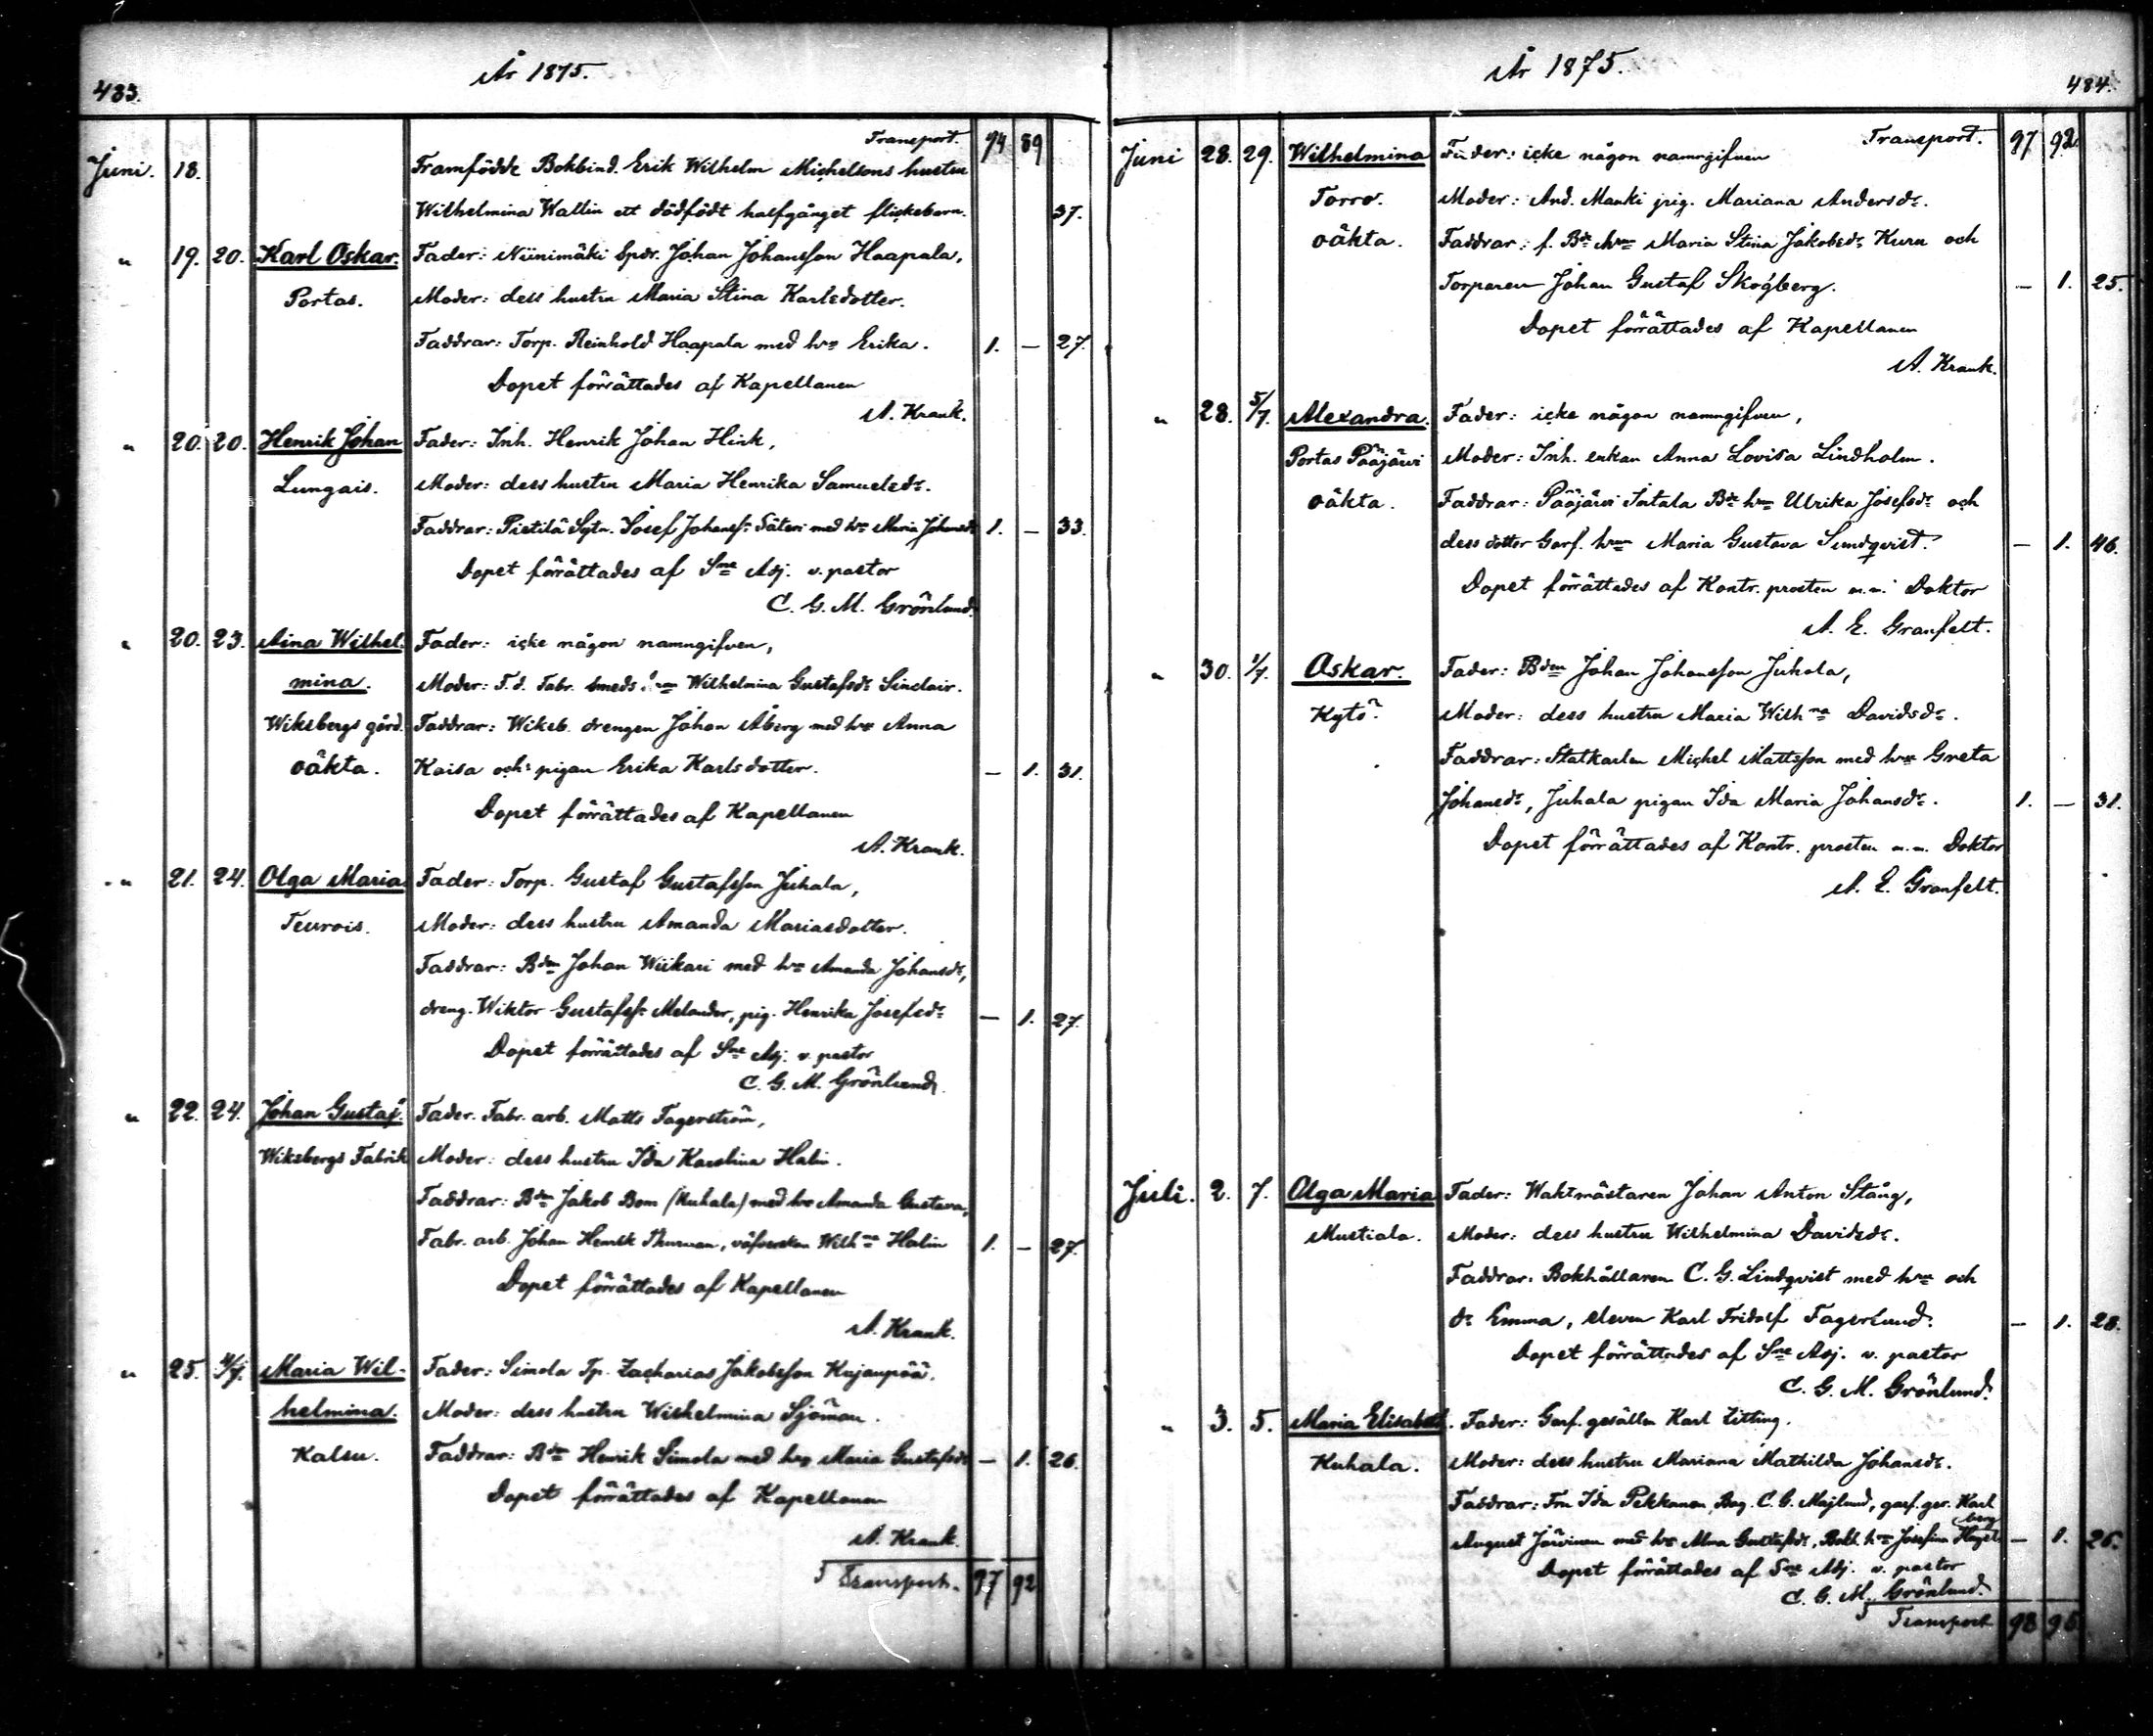 483.
År 1875.
Transport. 94 89
Juni. 18. Framfödde Bokbind. Erik Wilhelm Michelsons hustru
Wilhelmina Wallin ett dödfödt halfgånget flickebarn. 37.
" 19. 20. Karl Oskar. Fader: Niinimäki Spdr. Johan Johansson Haapala,
Portas. Moder: dess hustru Maria Stina Karlsdotter.
Faddrar: Torp. Reinhold Haapala med hru Erika. 1. — 27.
Dopet förrättades af Kapellanen
A. Krank.
" 20. 20. Henrik Johan Fader: Inh. Henrik Johan Hink,
Lungais. Moder: dess hustru Maria Henrika Samuelsdr.
Faddrar: Pietilä Sytn. Josef Johanss. Säteri med hru Maria Johansdr 1. — 33.
Dopet förrättades af Sne Adj. v. pastor
C. G. M. Grönlund.
" 20. 23. Aina Wilhel- Fader: icke någon namngifven,
mina. Moder: F.d. Fabr. smeds Wilhelmina Gustafsdr Sinclair.
Wiksbergs gård. Faddrar: Wiksb. drengen Johan Åberg med hru Anna
oäkta. Kaisa och pigan Erika Karlsdotter. — 1. 31.
Dopet förrättades af Kapellanen
A. Krank.
" 21. 24. Olga Maria Fader: Torp. Gustaf Gustafsson Juhala,
Teurois. Moder: dess hustru Amanda Mariasdotter.
Faddrar: Bdn Johan Wiikari med hru Amanda Johansdr,
dreng. Wiktor Gustafss. Melander, pig. Henrika Josefsdr — 1. 27.
Dopet förrättades af Sne Adj. v. pastor
C. G. M. Grönlund.
" 22. 24. Johan Gustaf. Fader. Fabr. arb. Matts Fagerström,
Wiksbergs Fabrik Moder: dess hustru Ida Karolina Halin.
Faddrar: Bdn Jakob Bom (Kuhala) med hru Amanda Gustava,
Fabr. arb. Johan Henrik Thurman, väfverskan Wilhna Halin 1. — 27.
Dopet förrättades af Kapellanen
A. Krank.
" 25. 4/7. Maria Wil- Fader: Simola Tp. Zacharias Jakobsson Kujanpää.
helmina. Moder: dess hustru Wilhelmina Sjöman.
Kalsu. Faddrar: Bdn Henrik Simola med hru Maria Gustafsdr — 1. 26.
Dopet förrättades af Kapellanen
A. Krank.
Transport. 97 92
År 1875.
484.
Transport. 97 92.
Juni 28. 29. Wilhelmina Fader: icke någon namngifven
Torro. Moder: And. Manki pig. Mariana Andersdr.
oäkta. Faddrar: f. Bde hru Maria Stina Jakobsdr Kuru och
Torparen Johan Gustaf Skogberg. — 1. 25.
Dopet förrättades af Kapellanen
A. Krank.
" 28. 5/7. Alexandra. Fader: icke någon namngifven,
Portas Pääjärvi Moder: Inh. enkan Anna Lovisa Lindholm.
oäkta. Faddrar: Pääjärvi Intala Bde hru Ulrika Josefsdr och
dess dotter Garf. hrun Maria Gustava Sundqvist. — 1. 46.
Dopet förrättades af Kontr. prosten m.m. Doktor
A. E. Granfelt.
" 30. 1/7. Oskar. Fader: Bden Johan Johansson Juhala,
Kytö. Moder: dess hustru Maria Wilhna Davidsdr.
Faddrar: Statkarlen Michel Mattsson med hru Greta
Johansdr, Juhala pigan Ida Maria Johansdr. 1. — 31.
Dopet förrättades af Kontr. prosten m.m. Doktor
A. E. Granfelt.
Juli. 2. 7. Olga Maria Fader: Waktmästaren Johan Anton Stång,
Mustiala. Moder: dess hustru Wilhelmina Davidsdr.
Faddrar: Bokhållaren C. G. Lindqvist med hru och
dr Emma, eleven Karl Fridolf Fagerlund. — 1. 28.
Dopet förrättades af Sne Adj. v. pastor
C. G. M. Grönlund.
" 3. 5. Maria Elisabeth. Fader: Garf. gesällen Karl Zitting.
Kuhala. Moder: dess hustru Mariana Mathilda Johansdr.
Faddrar: Fru Ida Pekkanen, Bag. C. G. Majlund, garf. ges. Karl
August Järvinen med hru Alma Gustafsdr, Bokh. hru Josefina Hagel-
berg — 1. 26.
Dopet förrättades af Sne Adj. v. pastor
C. G. M. Grönlund.
Transport 98 96